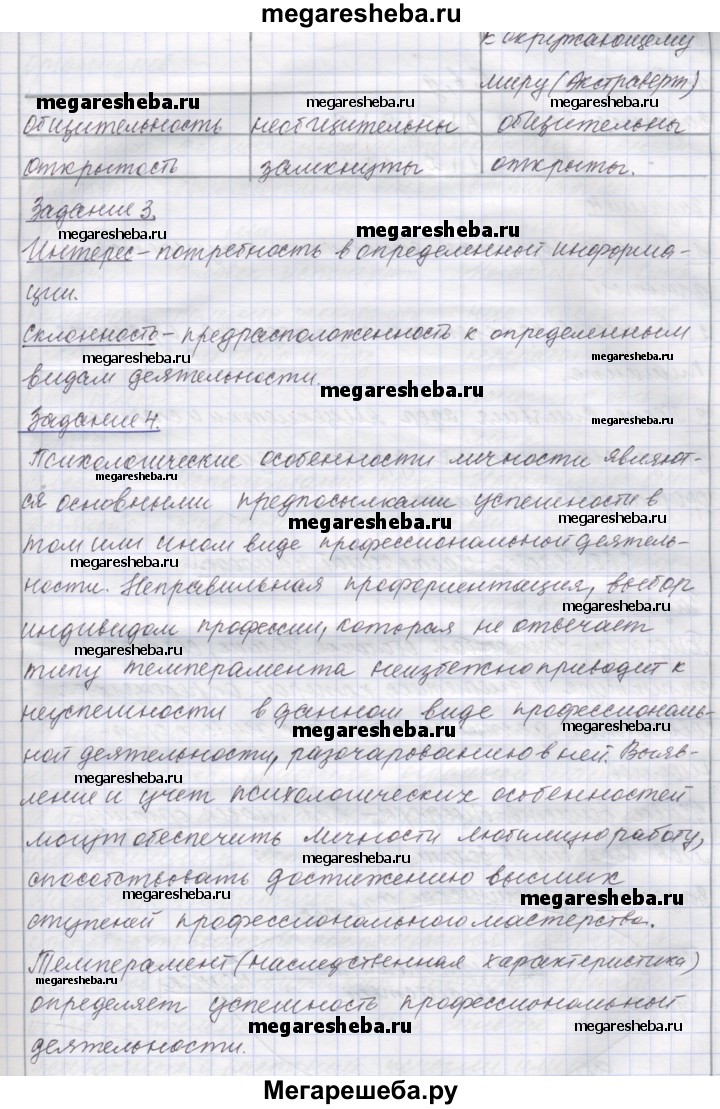 megaresheba.ru
к окружающему
миру (экстраверт)
megaresheba.ru megaresheba.ru megaresheba.ru
общительность необщительны общительны
открытость замкнуты открыты.
Задание 3.
megaresheba.ru megaresheba.ru
Интерес – потребность в определенной информа-
ции. megaresheba.ru
Склонность – предрасположенность к определенным
megaresheba.ru megaresheba.ru
видам деятельности. megaresheba.ru
Задание 4.
Психологические особенности личности являют-
megaresheba.ru
ся основными предпосылками успешности в
megaresheba.ru megaresheba.ru
том или ином виде профессиональной деятель-
megaresheba.ru
ности. Неправильная профориентация, выбор
megaresheba.ru
индивидом профессии, которая не отвечает
megaresheba.ru
типу темперамента неизбежно приводит к
неуспешности в данном виде профессиональ-
megaresheba.ru megaresheba.ru
ной деятельности, разочарованию в ней. Выяв-
megaresheba.ru
ление и учет психологических особенностей
могут обеспечить личности любимую работу,
megaresheba.ru
способствовать достижению высших
megaresheba.ru megaresheba.ru
ступеней профессионального мастерства.
Темперамент (наследственная характеристика)
megaresheba.ru
определяет успешность профессиональной
megaresheba.ru megaresheba.ru
деятельности.
Мегарешеба.ру